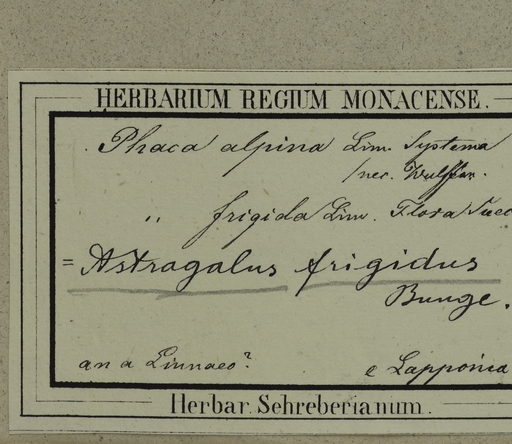 HERBARIUM REGIUM MONACENSE.
Phaca alpina Lin. Systema
/nec. Wulffen.
" frigida Lin. Flora Suec
= Astragalus frigidus
Bunge.
an a Linnaeo?
e Lapponia
Herbar. Schreberianum.